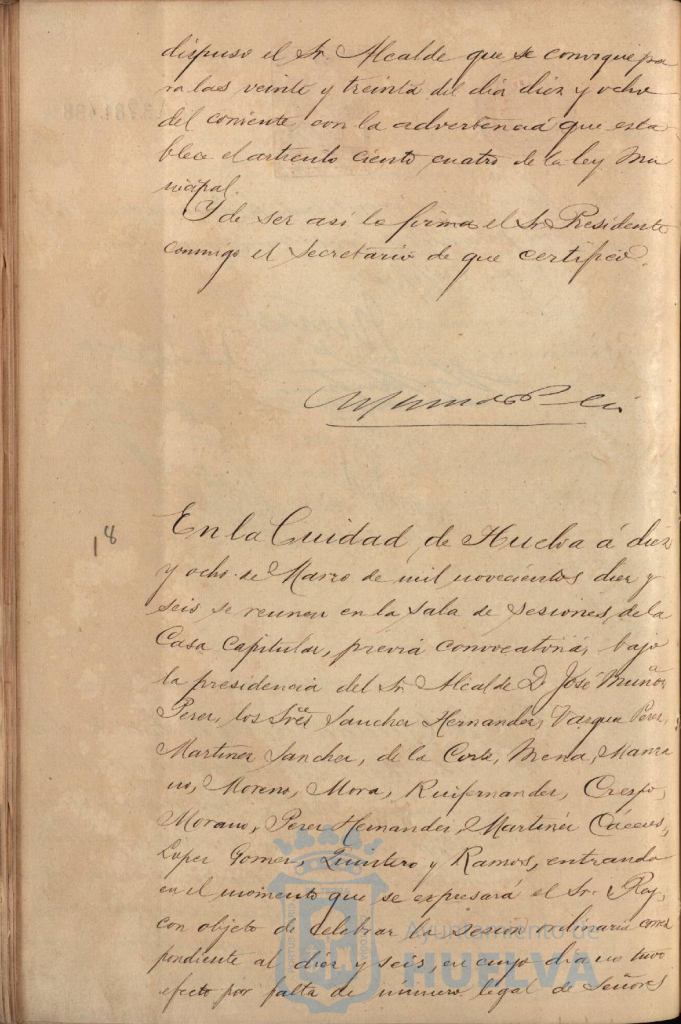 dispuso el Sr. Alcalde que se convoque pa
ra las veinte y treinta del dia diez y ocho
del corriente con la advertencia que esta
blece el articulo ciento cuatro de la ley Mu
nicipal.
Y de ser asi lo firma el Sr. Presidente
conmigo el Secretario de que certifico.
18
En la Ciudad de Huelva á diez
y ocho de Marzo de mil novecientos diez y
seis se reunen en la Sala de Sesiones de la
Casa Capitular, previa convocatoria, bajo
la presidencia del Sr. Alcalde D. José Muñoz
Perez, los Sres Sanchez Hernandez, Vazquez Perez,
Martinez Sanchez, de la Corte, Mena, Manza
no, Moreno, Mora, Ruifernandez, Crespo,
Morano, Perez Hernandez, Martinez Cáceres,
Lopez Gomez, Quintero y Ramos, entrando
en el momento que se expresará el Sr. Roy,
con objeto de celebrar la sesion ordinaria corres
pondiente al diez y seis, en cuyo dia no tuvo
efecto por falta de número legal de Señores
Ayuntamiento de
HUELVA